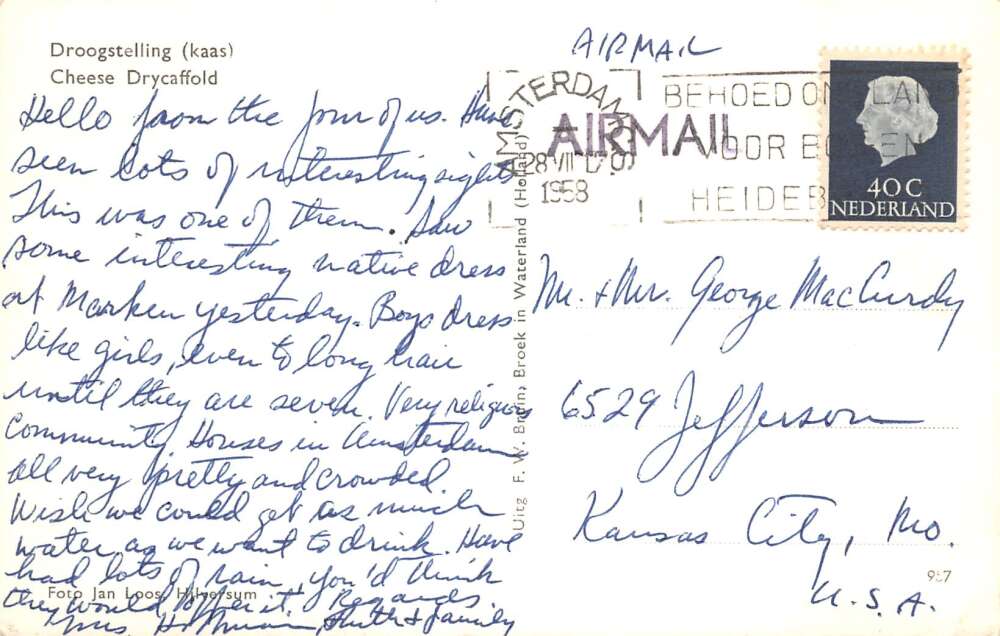 Droogstelling (kaas)
Cheese Drycaffold
Hello from the four of us. Have
seen lots of interesting sights
This was one of them. Saw
some interesting native dress
at Marken yesterday. Boys dress
like girls, even to long hair
until they are seven. Very religious
community. Houses in Amsterdam
all very pretty and crowded.
Wish we could get as much
water as we want to drink. Have
had lots of rain, you'd think
they would offer it. Regards.
& family
Foto Jan Loos, Hilversum
Uitg F. W. Bruin, Broek in Waterland (Holland)
AIRMAIL
AIRMAIL
AMSTERDAM
28 VII
1958
BEHOED ON LAND
VOOR
HEIDEB
40 C
NEDERLAND
Mr. & Mrs. George MacCurdy
6529 Jefferson
Kansas City, Mo.
U. S. A.
957